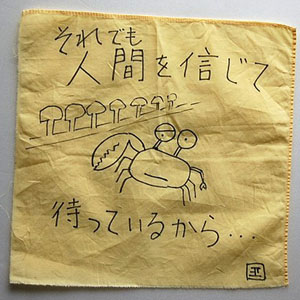 それでも
人間を信じて
待っているから・・・